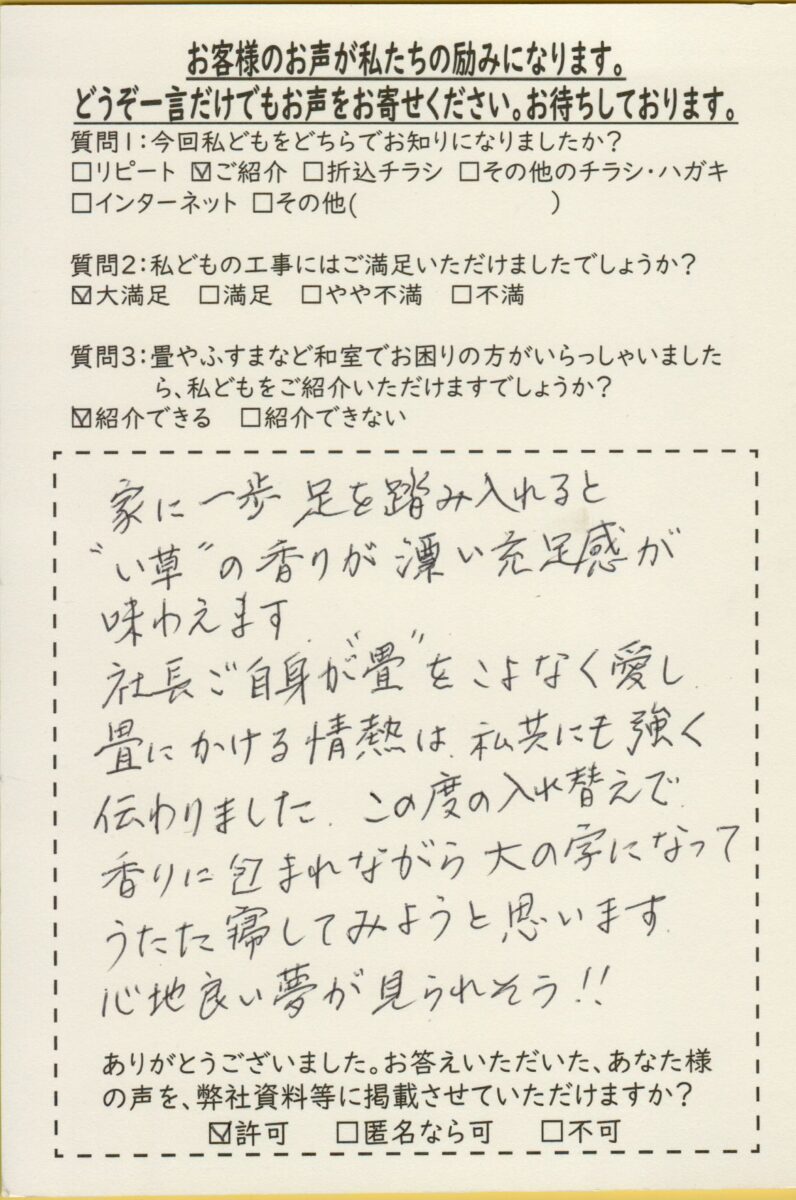 お客様のお声が私たちの励みになります。
どうぞ一言だけでもお声をお寄せください。お待ちしております。
質問1:今回私どもをどちらでお知りになりましたか?
□リピート ☑ご紹介 □折込チラシ □その他のチラシ・ハガキ
□インターネット □その他( )
質問2:私どもの工事にはご満足いただけましたでしょうか?
☑大満足 □満足 □やや不満 □不満
質問3:畳やふすまなど和室でお困りの方がいらっしゃいました
ら、私どもをご紹介いただけますでしょうか?
☑紹介できる □紹介できない
家に一歩 足を踏み入れると
"い草"の香りが漂い充足感が
味わえます
社長ご自身が"畳"をこよなく愛し
畳にかける情熱は 私共にも強く
伝わりました。この度の入れ替えで
香りに包まれながら大の字になって
うたた寝してみようと思います
心地良い夢が見られそう!!
ありがとうございました。お答えいただいた、あなた様
の声を、弊社資料等に掲載させていただけますか?
☑許可 □匿名なら可 □不可